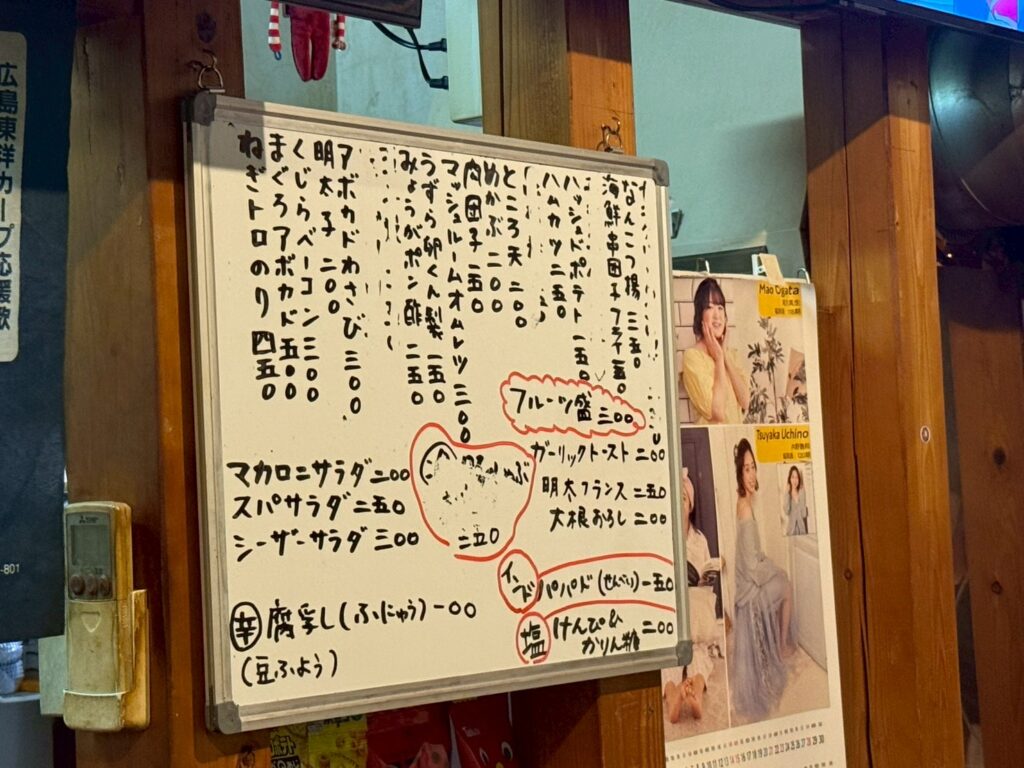 広島東洋カープ応援歌
-801
なんこつ揚 三五〇
海鮮串団子フライ
ハッシュドポテト 二五〇
ハムカツ 二五〇
ところ天 二〇〇
めかぶ 二〇〇
肉団子 二五〇
マッシュルームオムレツ 三〇〇
うずら卵くん製 二五〇
みょうがポン酢 二五〇
アボカドわさび 三〇〇
明太子 二〇〇
くじらベーコン 三〇〇
まぐろアボカド 五〇〇
ねぎトロのり 四五〇
フルーツ盛 三〇〇
ガーリックトースト 二〇〇
明太フランス 二五〇
大根おろし 二〇〇
二五〇
マカロニサラダ 二〇〇
スパサラダ 二五〇
シーザーサラダ 三〇〇
インド パパド(せんべい) 一五〇
塩 けんぴ&
かりん糖 二〇〇
辛 腐乳し(ふにゅう) 一〇〇
(豆ふよう)
Mao Ogata
Tsuyaka Uchino